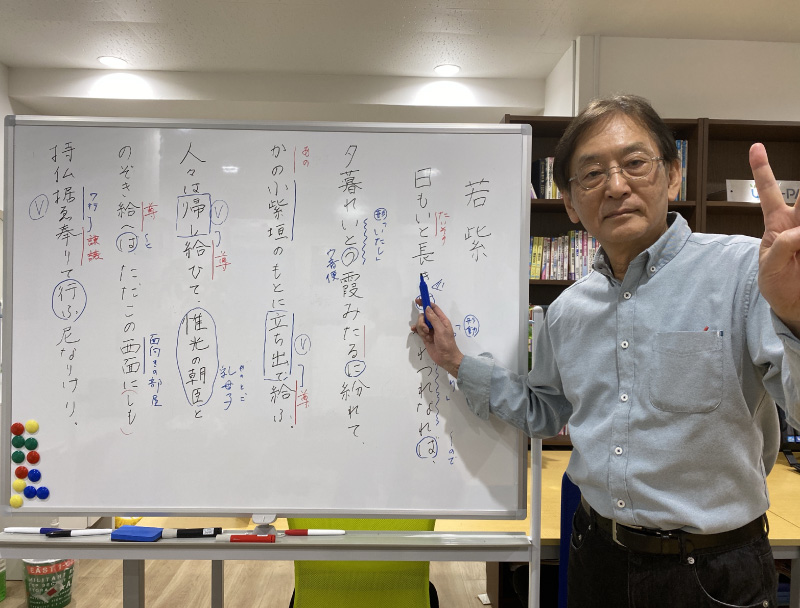 若紫
たいそう
日もいと長き
つれなれば、
形動
ので
夕暮れいとう霞みたるに紛れて、
「いたし」
ウ音便
あの
かの小紫垣のもとに立ち出で給ふ。
V
尊
人々は帰し給ひて、惟光の朝臣と
V
尊
めのとご
乳母子
のぞき給へばただこの西面に(しも)
尊
と
西向きの部屋
持仏据ゑ奉りて行ふ尼なりけり。
謙譲
V